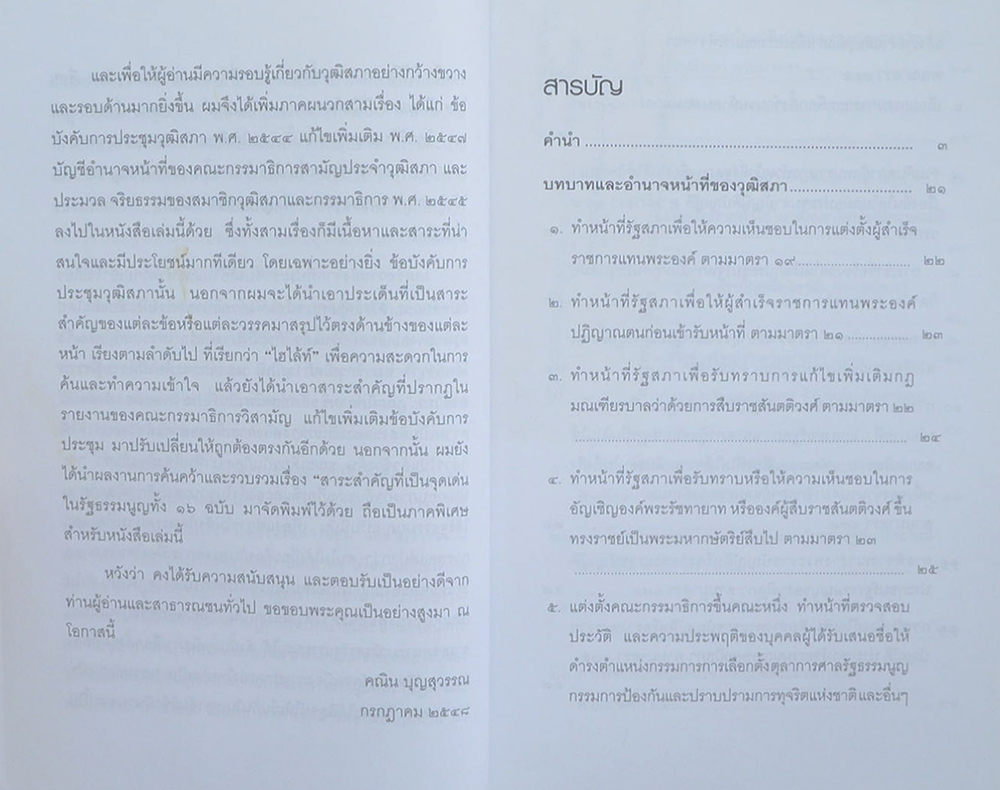 และเพื่อให้ผู้อ่านมีความรอบรู้เกี่ยวกับวุฒิสภาอย่างกว้างขวาง
และรอบด้านมากยิ่งขึ้น ผมจึงได้เพิ่มภาคผนวกสามเรื่อง ได้แก่ ข้อ
บังคับการประชุมวุฒิสภา พ.ศ. ๒๕๔๔ แก้ไขเพิ่มเติม พ.ศ. ๒๕๔๗
บัญชีอำนาจหน้าที่ของคณะกรรมาธิการสามัญประจำวุฒิสภา และ
ประมวล จริยธรรมของสมาชิกวุฒิสภาและกรรมาธิการ พ.ศ. ๒๕๔๕
ลงไปในหนังสือเล่มนี้ด้วย ซึ่งทั้งสามเรื่องก็มีเนื้อหาและสาระที่น่า
สนใจและมีประโยชน์มากทีเดียว โดยเฉพาะอย่างยิ่ง ข้อบังคับการ
ประชุมวุฒิสภานั้น นอกจากผมจะได้นำเอาประเด็นที่เป็นสาระ
สำคัญของแต่ละข้อหรือแต่ละวรรคมาสรุปไว้ตรงด้านข้างของแต่ละ
หน้า เรียงตามลำดับไป ที่เรียกว่า “ไฮไล้ท์” เพื่อความสะดวกในการ
ค้นและทำความเข้าใจ แล้วยังได้นำเอาสาระสำคัญที่ปรากฏใน
รายงานของคณะกรรมาธิการวิสามัญ แก้ไขเพิ่มเติมข้อบังคับการ
ประชุม มาปรับเปลี่ยนให้ถูกต้องตรงกันอีกด้วย นอกจากนั้น ผมยัง
ได้นำผลงานการค้นคว้าและรวบรวมเรื่อง “สาระสำคัญที่เป็นจุดเด่น
ในรัฐธรรมนูญทั้ง ๑๖ ฉบับ มาจัดพิมพ์ไว้ด้วย ถือเป็นภาคพิเศษ
สำหรับหนังสือเล่มนี้
หวังว่า คงได้รับความสนับสนุน และตอบรับเป็นอย่างดีจาก
ท่านผู้อ่านและสาธารณชนทั่วไป ขอขอบพระคุณเป็นอย่างสูงมา ณ
โอกาสนี้
คณิน บุญสุวรรณ
กรกฎาคม ๒๕๔๘
สารบัญ
คำนำ ........................................................ ๓
บทบาทและอำนาจหน้าที่ของวุฒิสภา.............................. ๒๑
๑. ทำหน้าที่รัฐสภาเพื่อให้ความเห็นชอบในการแต่งตั้งผู้สำเร็จ
ราชการแทนพระองค์ ตามมาตรา ๑๙............................ ๒๒
๒. ทำหน้าที่รัฐสภาเพื่อให้ผู้สำเร็จราชการแทนพระองค์
ปฏิญาณตนก่อนเข้ารับหน้าที่ ตามมาตรา ๒๑ ................ ๒๓
๓. ทำหน้าที่รัฐสภาเพื่อรับทราบการแก้ไขเพิ่มเติมกฎ
มณเฑียรบาลว่าด้วยการสืบราชสันตติวงศ์ ตามมาตรา ๒๒
........................................................ ๒๔
๔. ทำหน้าที่รัฐสภาเพื่อรับทราบหรือให้ความเห็นชอบในการ
อัญเชิญองค์พระรัชทายาท หรือองค์ผู้สืบราชสันตติวงศ์ ขึ้น
ทรงราชย์เป็นพระมหากษัตริย์สืบไป ตามมาตรา ๒๓
........................................................ ๒๕
๕. แต่งตั้งคณะกรรมาธิการขึ้นคณะหนึ่ง ทำหน้าที่ตรวจสอบ
ประวัติ และความประพฤติของบุคคลผู้ได้รับเสนอชื่อให้
ดำรงตำแหน่งกรรมการการเลือกตั้งตุลาการศาลรัฐธรรมนูญ
กรรมการป้องกันและปราบปรามการทุจริตแห่งชาติ และอื่นๆ